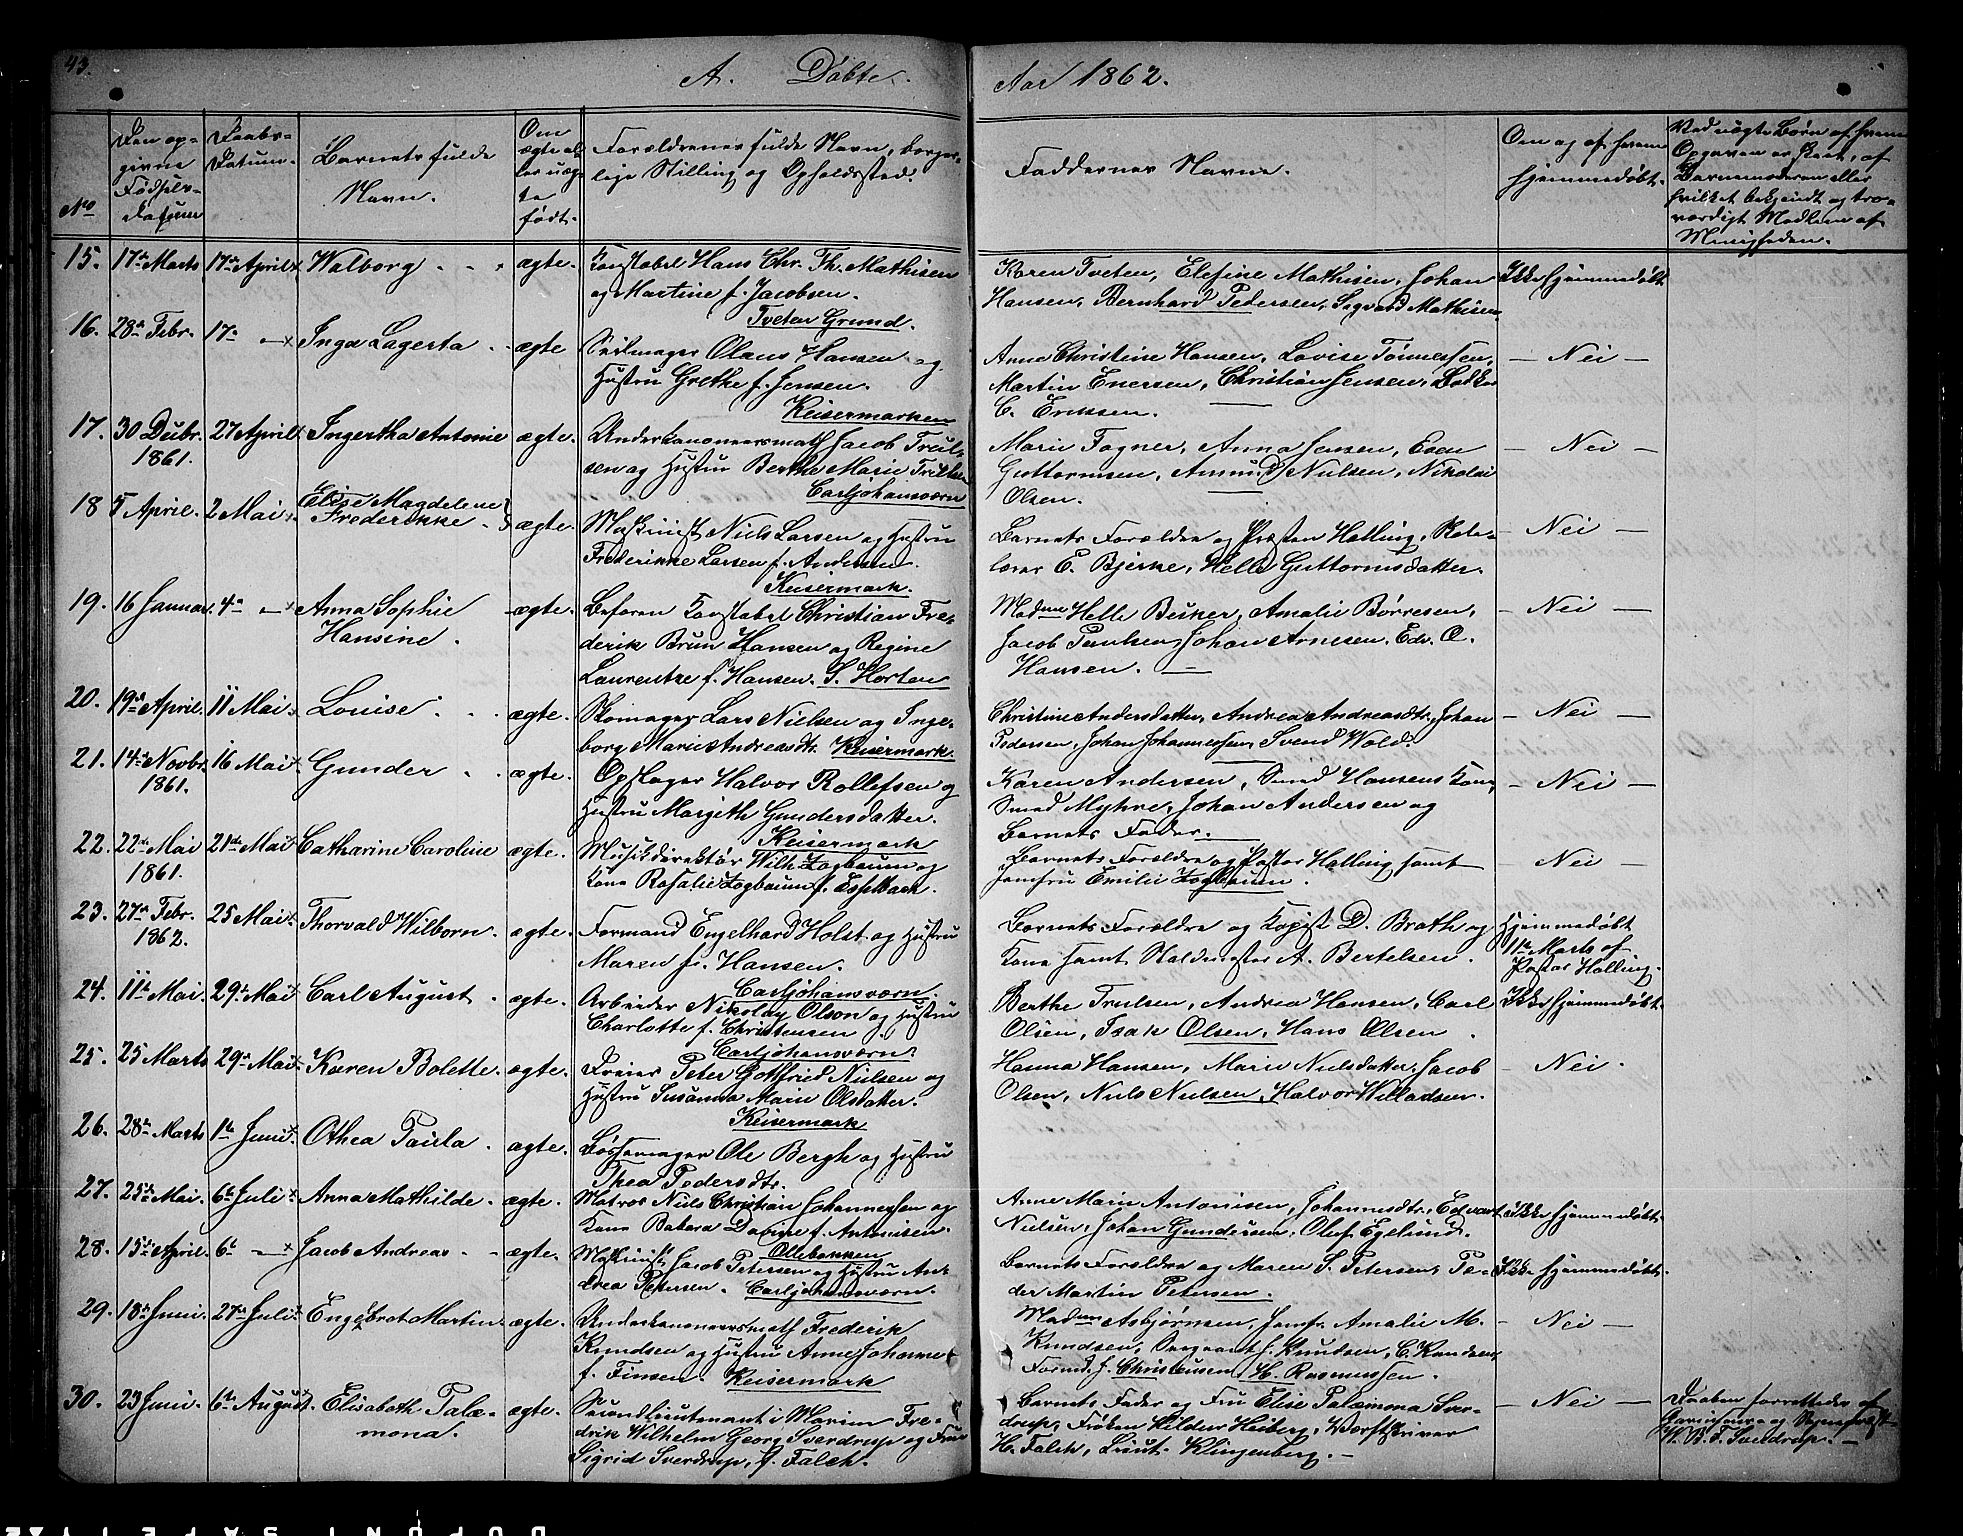 43.
A. Døbte.
Aar 1862.
No
Den op-
givne
Fødsels-
Datum
Daabs-
Datum.
Barnets fulde
Navn.
Om
ægte el-
ler uæg-
te
født.
Forældrenes fulde Navn, borger-
lige Stilling og Opholdssted.
Faddernes Navne.
Om og af hvem
hjemmedøbt.
Ved uægte Børn af hvem
Opgaven er skeet, af
Barnemoderen eller
hvilket bekjendt og tro-
værdigt Medlem af
Menigheden.
15. 17de Marts 17de April Walborg ægte. Konstabel Hans Chr. Th. Mathisen
og Martine f. Jacobsen.
Tveten Grund.
Karen Tveten, Elefine Mathisen, Johan
Hansen, Bernhard Pedersen, Sigvard Mathisen
Ikke hjemmedøbt
16. 28de Febr. 17de — Inga Lagerta ægte Seilmager Olaus Hansen og
Hustru Grethe f. Jensen.
Keisermarken
Anne Christine Hansen, Lovise Tønnessen,
Martin Enersen, Christian Jensen,
C. Eriksen.
— Nei —
17. 30 Decbr. 27 April Ingertha Antonie ægte. Underkanoneersmath Jacob Truel-
1861.
sen og Hustru Berthe Marie
Carljohansværn
Marie Fagner, Anna Jensen, Even
Guttormsen, Amund Nielsen, Nikolai
Olsen.
— Nei —
18 5 April. 2 Mai Elise Magdelene
Frederikke ægte. Maskinist Niels Larsen og Hustru
Frederikke Larsen f. Andersen.
Keisermark.
Barnets Forældre og Præsten Halling, Sko-
lærer E. Bjerke, Helle Guttormsdatter.
— Nei —
19. 16 Januar. 4de — Anna Sophie
Hansine. ægte. Befaren Konstabel Christian Fre-
derik Brun Hansen og Regine
Laurentze f. Hansen. S. Horten
Madme Helle Beiker, Amalie Børresen,
Jacob Paulsen, Johan Arnesen. Edv. O.
Hansen.
— Nei —
20. 19de April. 11 Mai Louise. ægte. Skomager Lars Nielsen og Inge-
borg Marie Andreasdtr. Keisermark.
Christine Andersdatter, Andrea Andreasdtr, Johan
Pedersen, Johan Johannessen, Svend Wold.
— Nei —
21. 14de Novbr. 16 Mai Gunder ægte. Opslager Halvor Rollefsen og
1861.
Hustru Margith Gundersdatter.
Keisermark
Karen Andersen, Smed Hansens Kone,
Smed Myhre, Johan Andersen og
Barnets Fader.
— Nei —
22. 22de Mai 21de Mai Catharine Caroline ægte. Musikdirektør Wilh. Zogbaum og
1861.
Kone Rosalie Zogbaum f. Esselbach.
Barnets Forældre og Pastor Halling samt
Jomfru Emilie Zogbaum.
— Nei —
23. 27de Febr. 25 Mai Thorvald Wilborn. ægte. Formand Engelhard Holst og Hustru
1862.
Maren f. Hansen.
Carljohansværn.
Barnets Forældre og Kopist D. Brath og
Kone samt Staldmester A. Bertelsen.
Hjemmedøbt
11te Marts af
Pastor Halling.
24. 11te Mai. 29de Mai Carl August ægte. Arbeider Nikolay Olson og Hustru
Charlotte f. Christensen
Carljohansværn.
Berthe Trulsen, Andrea Hansen, Carl
Olsen, Isak Olsen, Hans Olsen.
Ikke hjemmedøbt.
25. 25 Marts 29de Mai Karen Bolette. ægte. Dreier Peter Gottfried Nielsen og
Hustru Susanna Marie Olsdatter.
Keisermark
Hanna Hansen, Marie Nielsdatter, Jacob
Olsen, Niels Nielsen, Halvor Willadsen.
— Nei.
26. 28de Marts 1te Juni Othea Paula ægte. Bøssemager Ole Bergh og Hustru
Thea Pedersdtr.
27. 25de Mai. 6te Juli Anna Mathilde. ægte. Matros Niels Christian Johannessen og
Kone Babara Davine f. Antonisen.
Ollebakken
Anne Marie Antonisen, Johannesdtr., Edvart
Nielsen, Johan Gundersen, Oluf Egelund.
Ikke hjemmedøbt.
28. 15de April. 6te — Jacob Andreas. ægte. Maskinist Jacob Petersen og Hustru An-
drea Petersen. Carljohansværn.
Barnets Forældre og Maren S. Petersen, Pe-
der Martin Petersen.
Ikke hjemmedøbt.
29. 18de Juni. 27de Juli Engebret Martin. ægte. Underkanoneersmath Frederik
Knudsen og Hustru Anne Johanne
f. Finsen. Keisermark
Madme Asbjørnsen, Jomfr. Amalie M.
Knudsen, Sergeant J. Knudsen, C. Knudsen,
Formd. J. Christensen, H. Rasmussen.
— Nei —
30. 23 Juni. 6te August. Elisabeth Palæ-
mona. ægte. Secondlieutenant i Marinen Fre-
drik Wilhelm Georg Sverdrup og Frue
Sigrid Sverdrup, f. Falch.
Barnets Fader og Fru Elise Palæmona Sver-
drup, Frøken Hildur Heiberg, Værftskriver
H. Falch, Lieut. Klingenberg. —
— Nei —
Daaben forrettedes af
Garnisons- og Sognepræst
Sverdrup. —